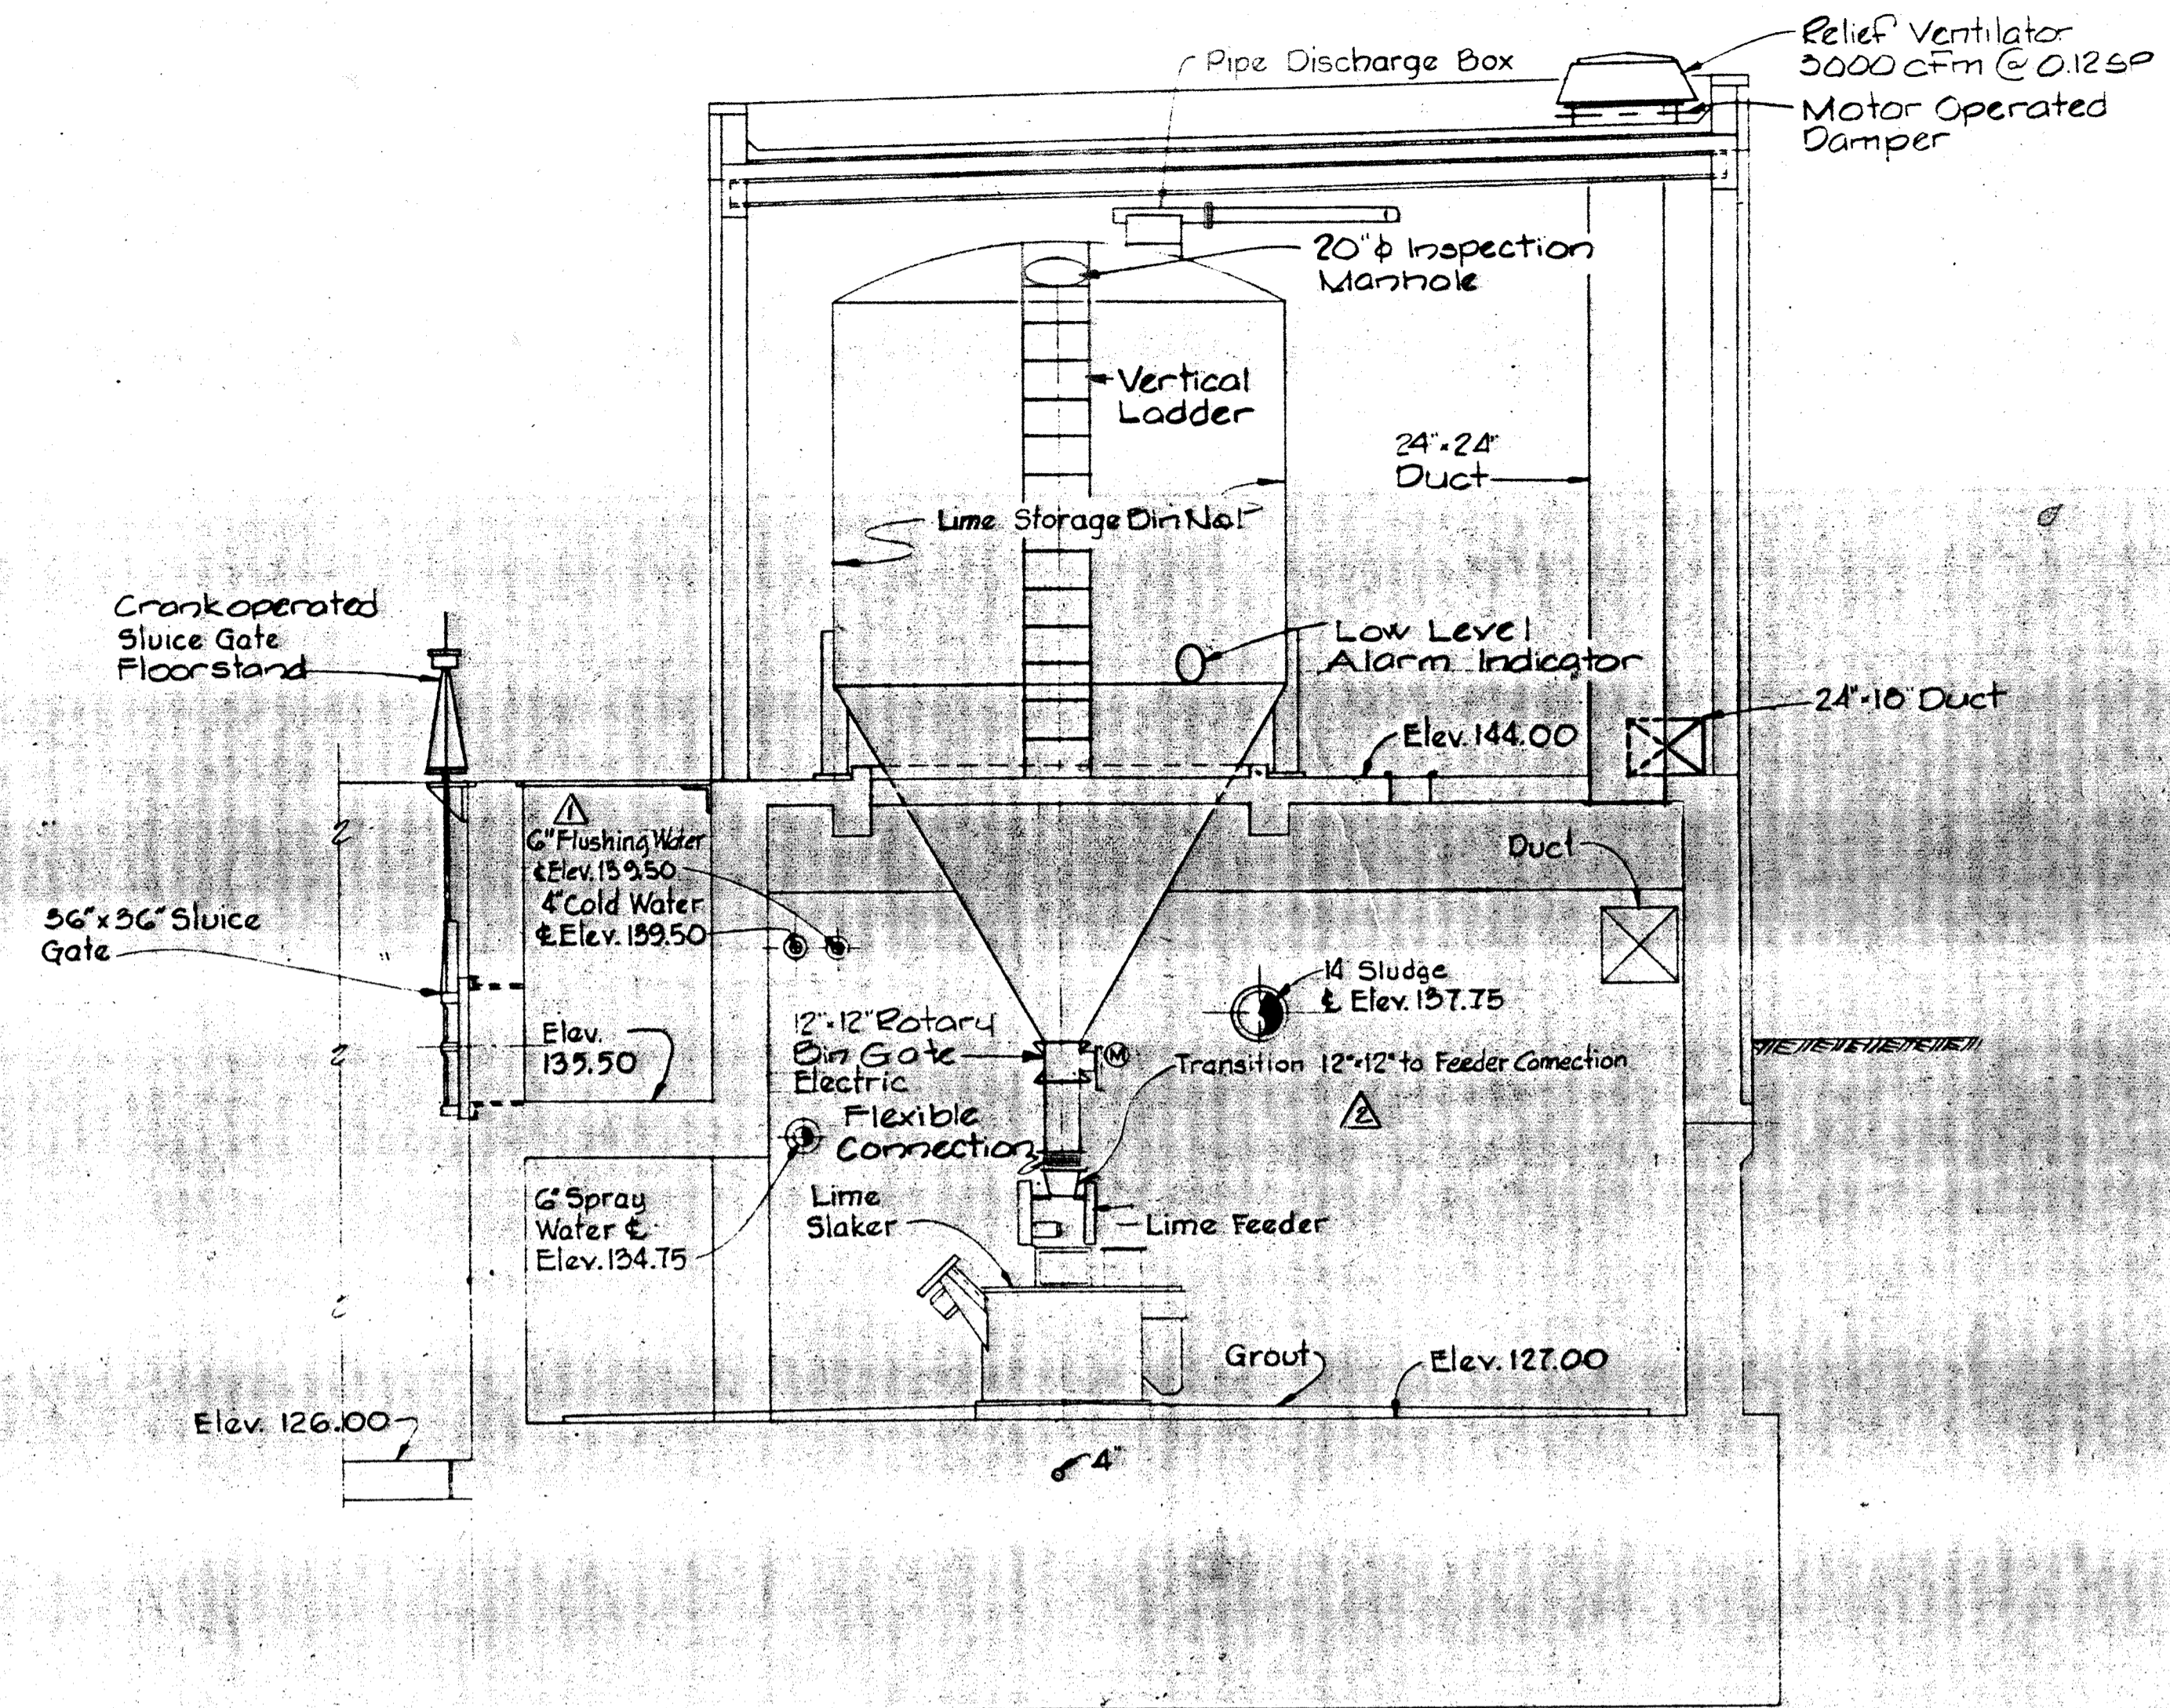 Relief Ventilator
3000 cfm @ 0.12 SP
Motor Operated
Damper
Pipe Discharge Box
20"ϕ Inspection
Manhole
Vertical
Ladder
24"×24"
Duct
Lime Storage Bin No.1
Crank operated
Sluice Gate
Floorstand
Low Level
Alarm Indicator
24"×18" Duct
Elev. 144.00
1
6" Flushing Water
℄ Elev. 139.50
4" Cold Water
℄ Elev. 139.50
Duct
36"x36" Sluice
Gate
14" Sludge
℄ Elev. 137.75
Elev.
135.50
12"×12" Rotary
Bin Gate
Electric
M
Transition 12"×12" to Feeder Connection
2
Flexible
Connection
6" Spray
Water ℄
Elev. 134.75
Lime
Slaker
Lime Feeder
Grout
Elev. 127.00
Elev. 126.00
4"